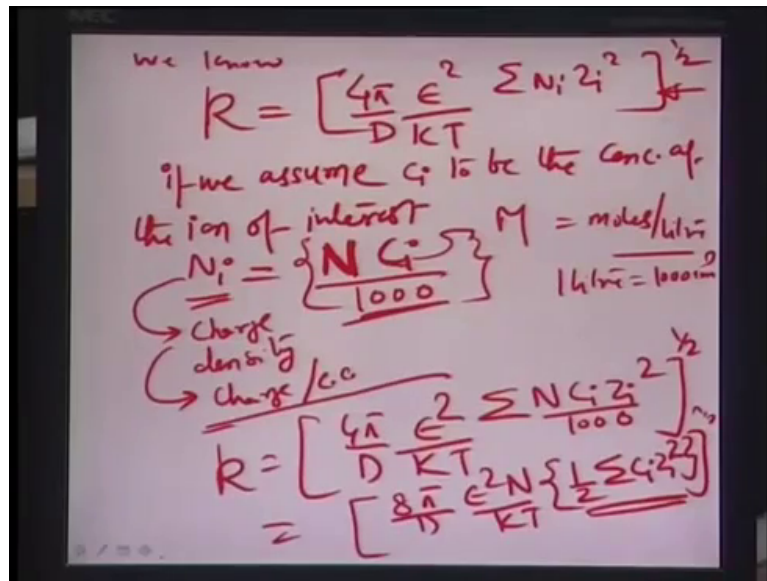 NEC
we know
K = [4π/D ε²/KT Σ Ni Zi²]^1/2
if we assume Ci to be the Conc. of
the ion of interest
Ni = {N Ci/1000} M = moles/litre
1 litre = 1000
charge
density
charge/cc
K = [4π/D ε²/KT Σ N Ci Zi²/1000]^1/2
= [8π/D ε²N/KT {1/2 Σ Ci Zi²}]